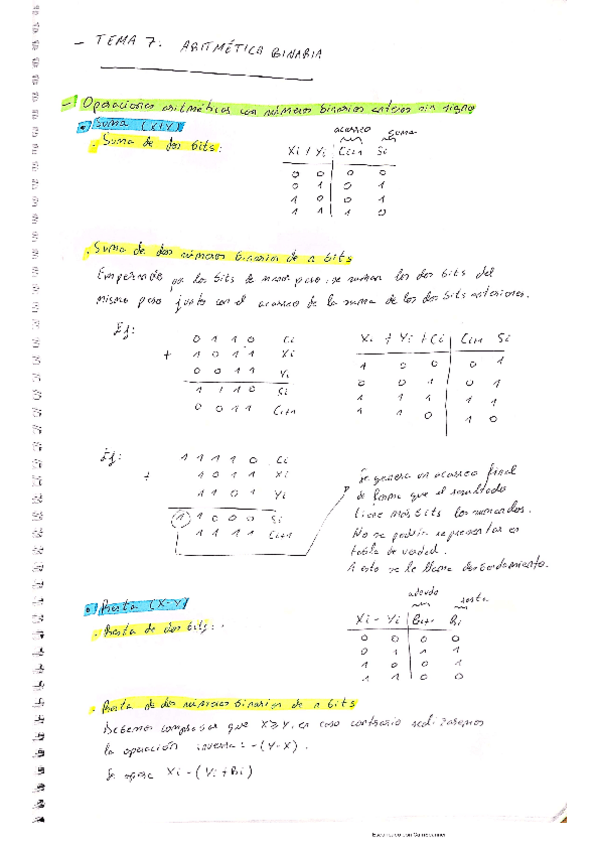 - TEMA 7: ARITMÉTICA BINARIA
- Operaciones aritméticas con números binarios enteros sin signo
• Suma (X+Y)
- Suma de dos bits:
acarreo suma
Xi + Yi | Ci+1 Si
0 0 0 0
0 1 0 1
1 0 0 1
1 1 1 0
- Suma de dos números binarios de n bits
Empezando por los bits de menor peso, se suman los dos bits del
mismo peso junto con el acarreo de la suma de los dos bits anteriores.
Ej:
0 1 1 0 Ci
+ 1 0 1 1 Xi
0 0 1 1 Yi
1 1 1 0 Si
0 0 1 1 Ci+1
Xi + Yi + Ci | Ci+1 Si
1 0 0 0 1
0 0 1 0 1
1 1 1 1 1
1 1 0 1 0
Ej:
1 1 1 1 0 Ci
+ 1 0 1 1 Xi
1 1 0 1 Yi
1 1 0 0 0 Si
1 1 1 1 Ci+1
Se genera un acarreo final
de forma que el resultado
tiene más bits los sumandos.
No se podría representar en
tabla de verdad.
A esto se le llama desbordamiento.
• Resta (X-Y)
- Resta de dos bits:
adeudo resta
Xi - Yi | Bi+1 Ri
0 0 0 0
0 1 1 1
1 0 0 1
1 1 0 0
- Resta de dos números binarios de n bits
Debemos comprobar que X≥Y, en caso contrario realizaremos
la operación inversa: -(Y-X).
Se opera Xi - (Yi + Bi)
Escaneado con CamScanner